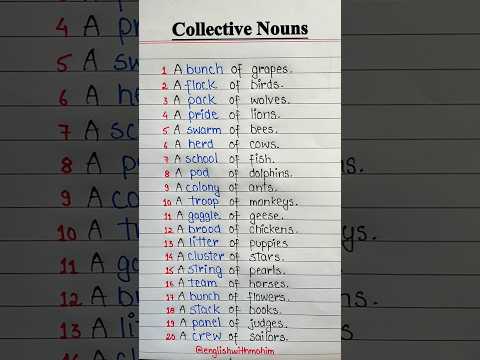 Collective Nouns
1 A bunch of grapes.
2 A flock of birds.
3 A pack of wolves.
4 A pride of lions.
5 A swarm of bees.
6 A herd of cows.
7 A school of fish.
8 A pod of dolphins.
9 A colony of ants.
10 A troop of monkeys.
11 A gaggle of geese.
12 A brood of chickens.
13 A litter of puppies
14 A cluster of stars.
15 A string of pearls.
16 A team of horses.
17 A bunch of flowers.
18 A stack of books.
19 A panel of judges.
20 A crew of sailors.
@englishwithmohim